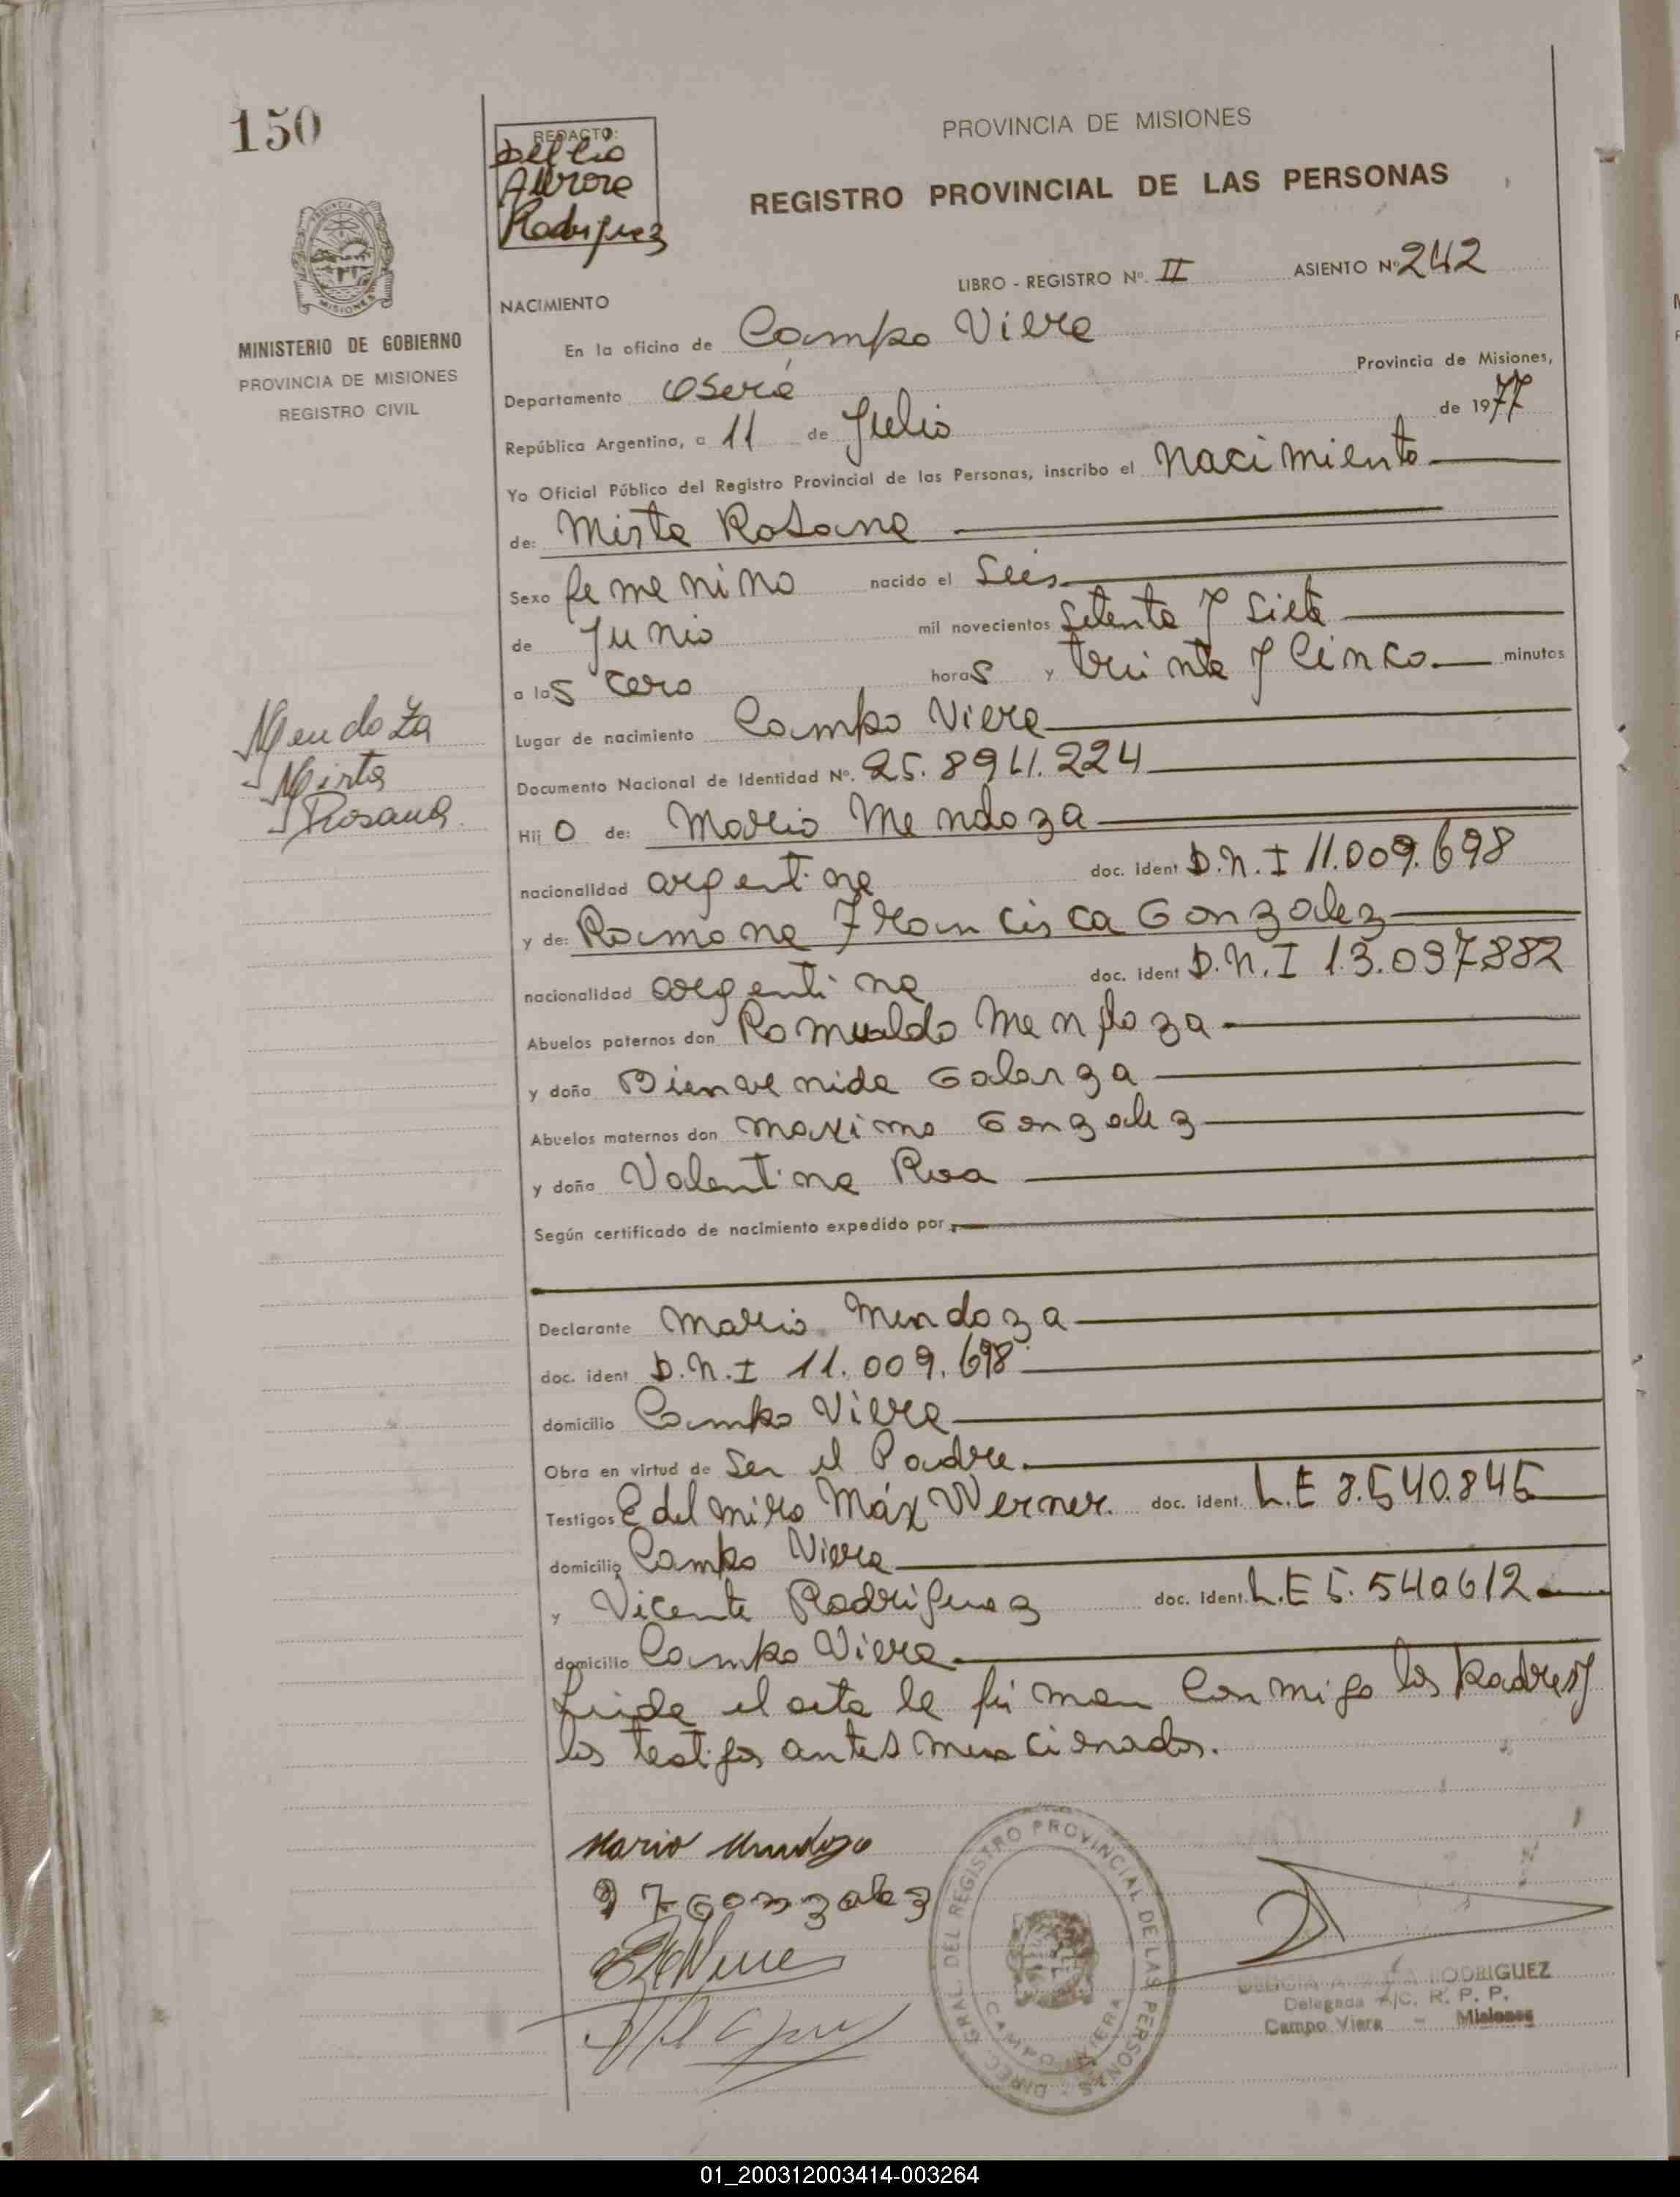 150
REDACTO:
Aurora
Rodriguez
PROVINCIA DE MISIONES
REGISTRO PROVINCIAL DE LAS PERSONAS
LIBRO - REGISTRO Nº. II ASIENTO Nº 242
PROVINCIA DE
MISIONES
MINISTERIO DE GOBIERNO
PROVINCIA DE MISIONES
REGISTRO CIVIL
NACIMIENTO
En la oficina de Campo Viera
Departamento Oberá Provincia de Misiones,
República Argentina, a 11 de Julio de 1977
Yo Oficial Público del Registro Provincial de las Personas, inscribo el nacimiento
de: Mirta Rosana
Sexo femenino nacido el seis
de Junio mil novecientos setenta y siete
a las cero horas y treinta y cinco minutos
Mendoza
Mirta
Rosana
Lugar de nacimiento Campo Viera
Documento Nacional de Identidad Nº. 25.894.224
Hij o de: Mario Mendoza
nacionalidad argentina doc. ident D.N.I 11.009.698
y de: Ramona Francisca Gonzalez
nacionalidad argentina doc. ident D.N.I 13.097882
Abuelos paternos don Romualdo Mendoza
y doña Bienvenida Galarza
Abuelos maternos don Maximo Gonzalez
y doña Valentina Roa
Según certificado de nacimiento expedido por
Declarante Mario Mendoza
doc. ident D.N.I 11.009.698
domicilio Campo Viera
Obra en virtud de ser el Padre
Testigos Edelmiro Máx Werner. doc. ident. L.E 8.540.845
domicilio Campo Viera
y Vicente Rodriguez doc. ident. L.E 5.540612
domicilio Campo Viera
Leida el acta la firman conmigo los Padres y
los testigos antes mencionados.
Mario Mendoza
Gonzalez
DIREC. GRAL. DEL REGISTRO PROVINCIAL DE LAS PERSONAS
CAMPO VIERA
RODRIGUEZ
Delegada A/C. R. P. P.
Campo Viera - Misiones
01_200312003414-003264